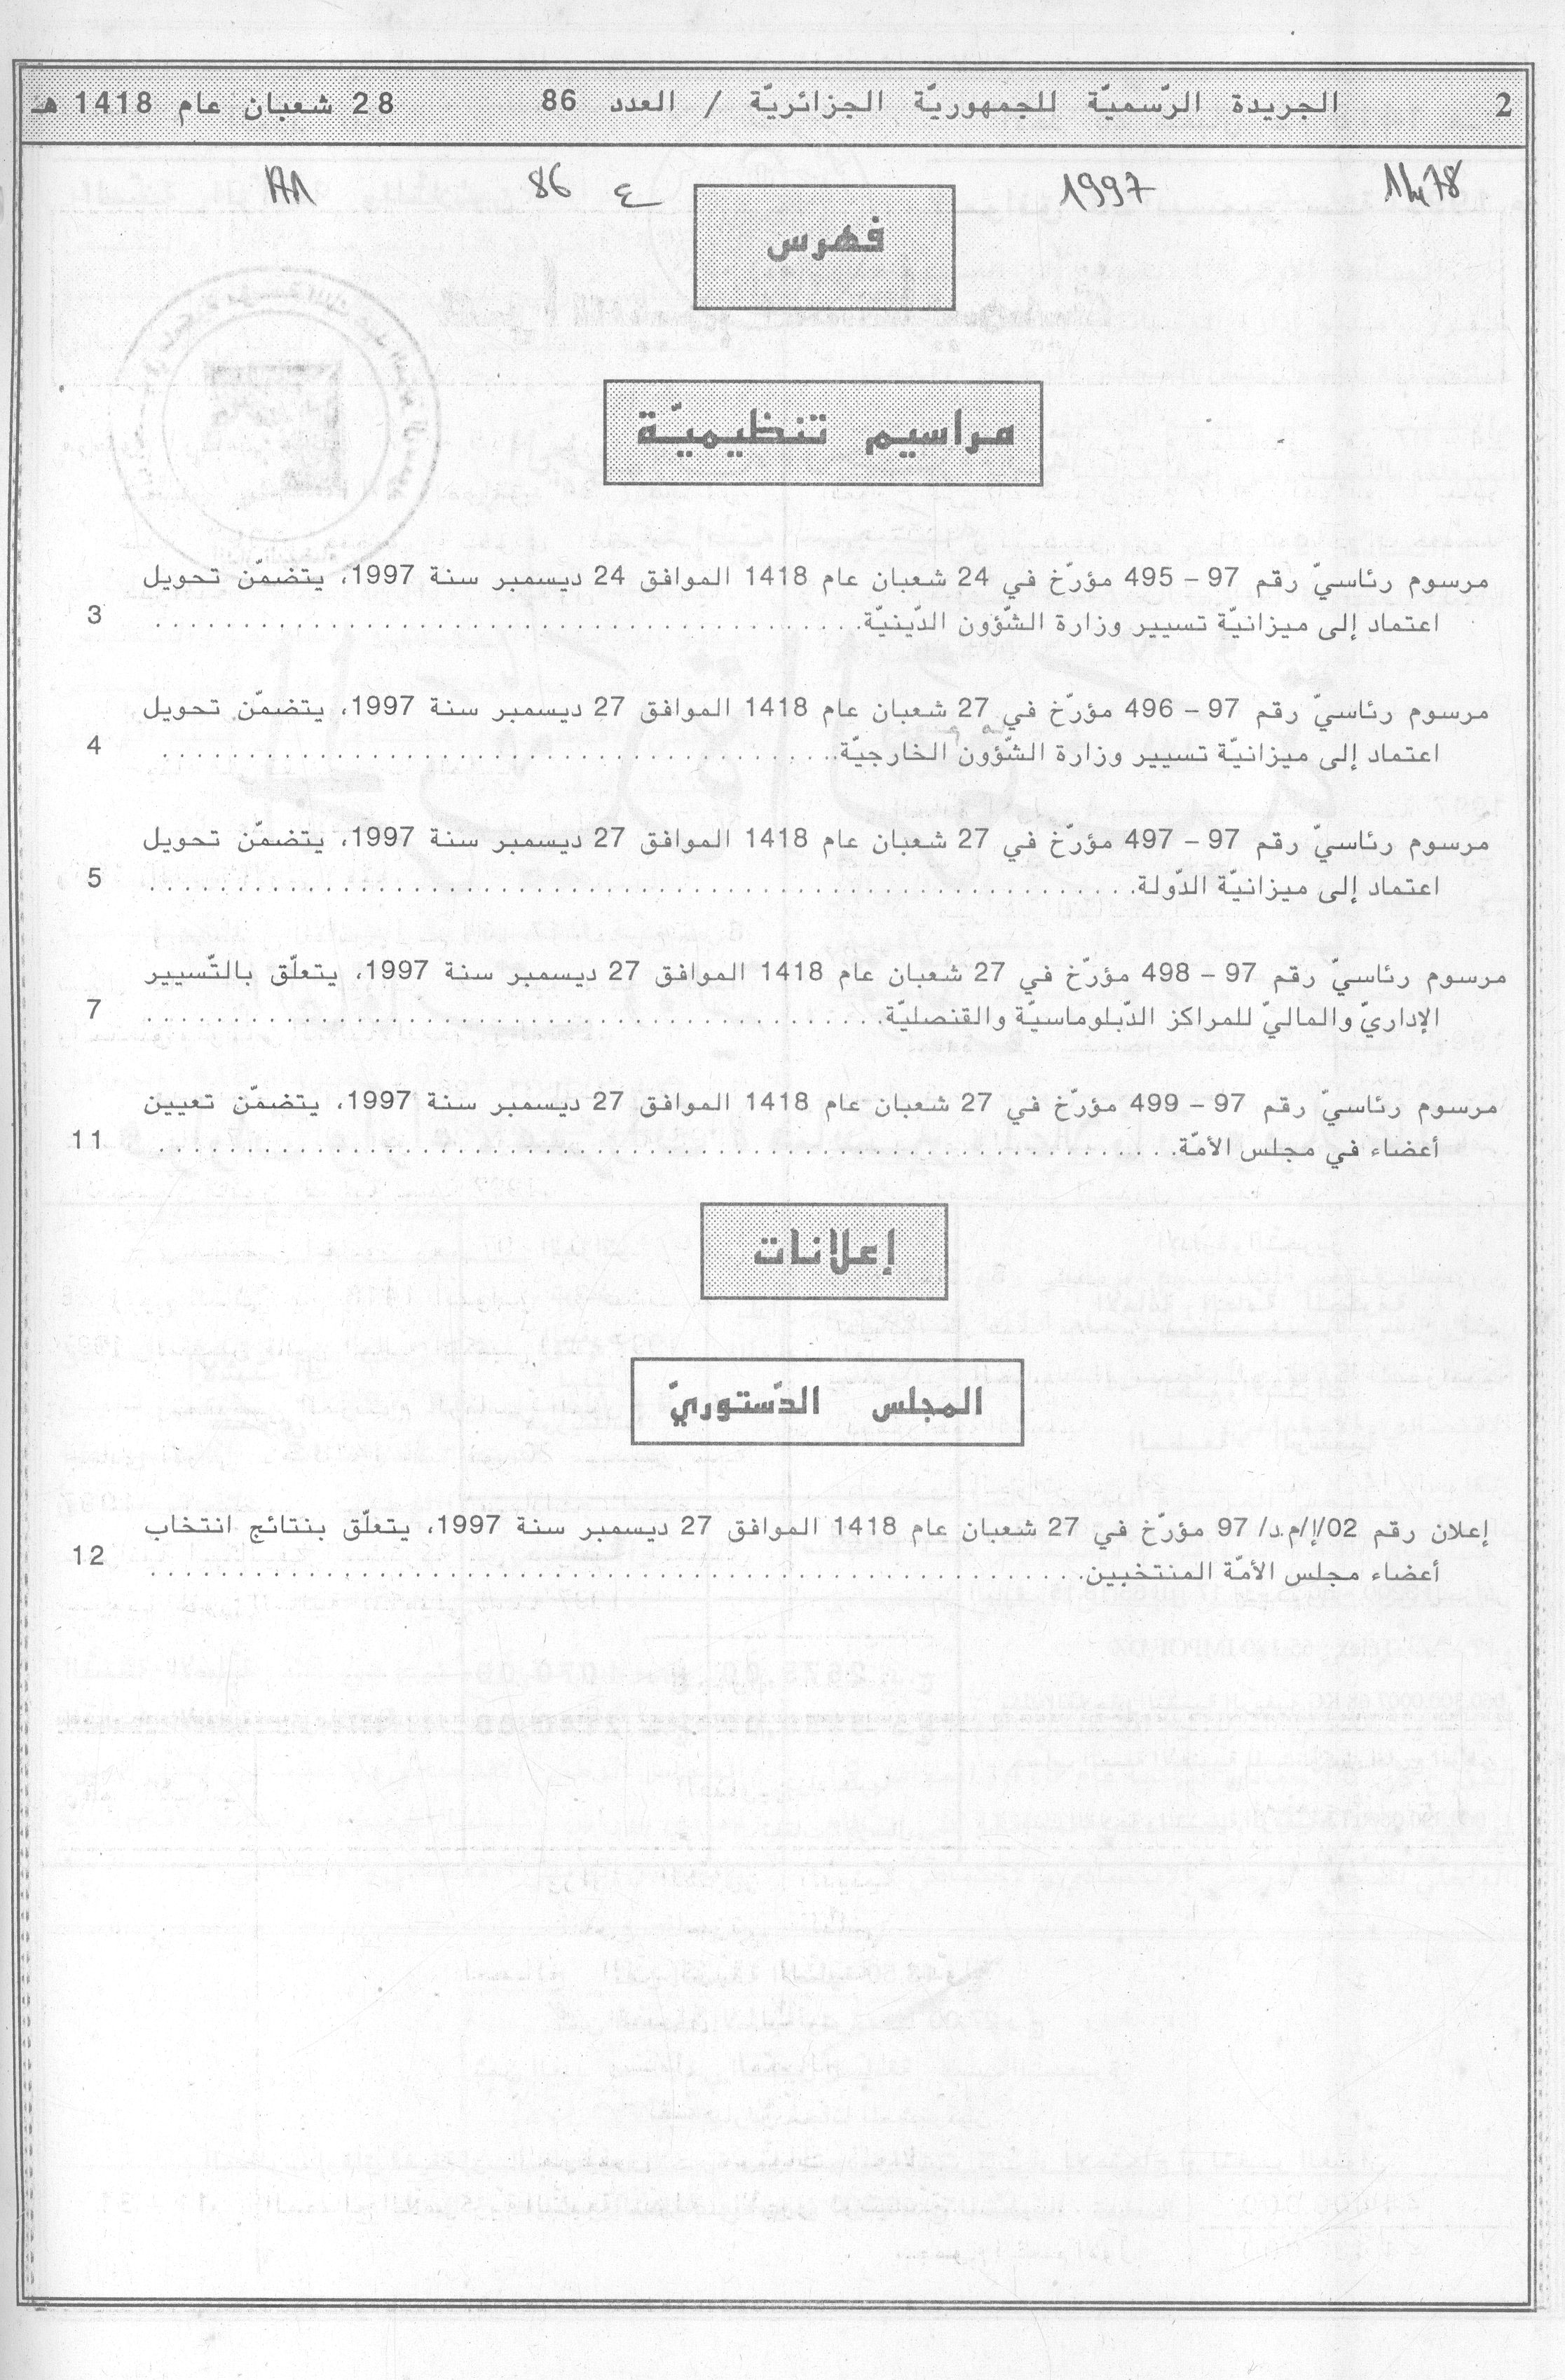 2 الجريدة الرّسميّة للجمهوريّة الجزائريّة / العدد 86 28 شعبان عام 1418 هـ
1997 ع 86
فهرس
مراسيم تنظيميّة
مرسوم رئاسيّ رقم 97 – 495 مؤرّخ في 24 شعبان عام 1418 الموافق 24 ديسمبر سنة 1997، يتضمّن تحويل
اعتماد إلى ميزانيّة تسيير وزارة الشّؤون الدّينيّة........................................ 3
مرسوم رئاسيّ رقم 97 – 496 مؤرّخ في 27 شعبان عام 1418 الموافق 27 ديسمبر سنة 1997، يتضمّن تحويل
اعتماد إلى ميزانيّة تسيير وزارة الشّؤون الخارجيّة........................................ 4
مرسوم رئاسيّ رقم 97 – 497 مؤرّخ في 27 شعبان عام 1418 الموافق 27 ديسمبر سنة 1997، يتضمّن تحويل
اعتماد إلى ميزانيّة الدّولة........................................................ 5
مرسوم رئاسيّ رقم 97 – 498 مؤرّخ في 27 شعبان عام 1418 الموافق 27 ديسمبر سنة 1997، يتعلّق بالتّسيير
الإداريّ والماليّ للمراكز الدّبلوماسيّة والقنصليّة........................................ 7
مرسوم رئاسيّ رقم 97 – 499 مؤرّخ في 27 شعبان عام 1418 الموافق 27 ديسمبر سنة 1997، يتضمّن تعيين
أعضاء في مجلس الأمّة........................................................ 11
إعلانات
المجلس الدّستوريّ
إعلان رقم 02/إ/م.د/ 97 مؤرّخ في 27 شعبان عام 1418 الموافق 27 ديسمبر سنة 1997، يتعلّق بنتائج انتخاب
أعضاء مجلس الأمّة المنتخبين.................................................... 12